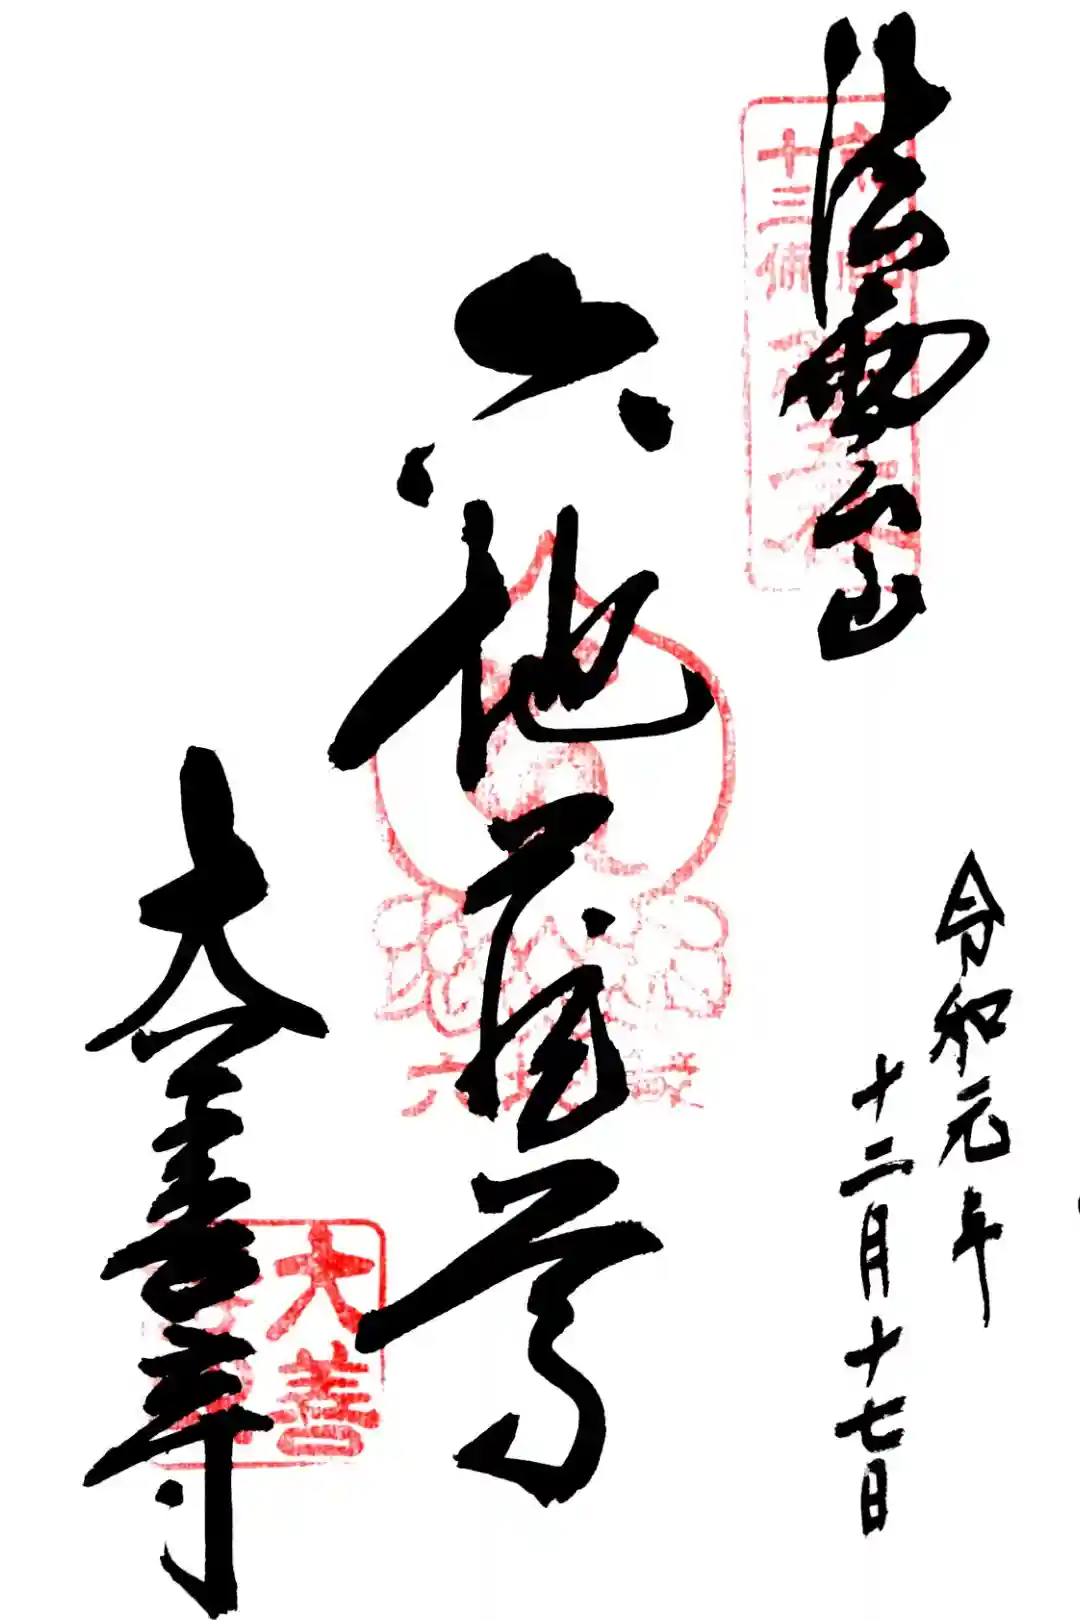 法雲山
令和元年
十二月十七日
六地蔵尊
六地蔵
大善寺
大善